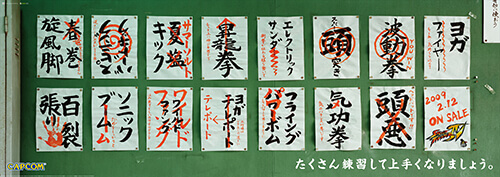 ヨガ
ファイヤー
波動拳
頭
エレクトリック
サンダー
昇龍拳
サマーソルト
夏塩
キック
春巻
旋風脚
2009
2.12
ON SALE
頭悪
気功拳
フライング
パワーボム
ヨガ
テレポート
ワイルド
ファング
ソニック
ブーム
百裂
張川
CAPCOM
たくさん練習して上手くなりましょう。